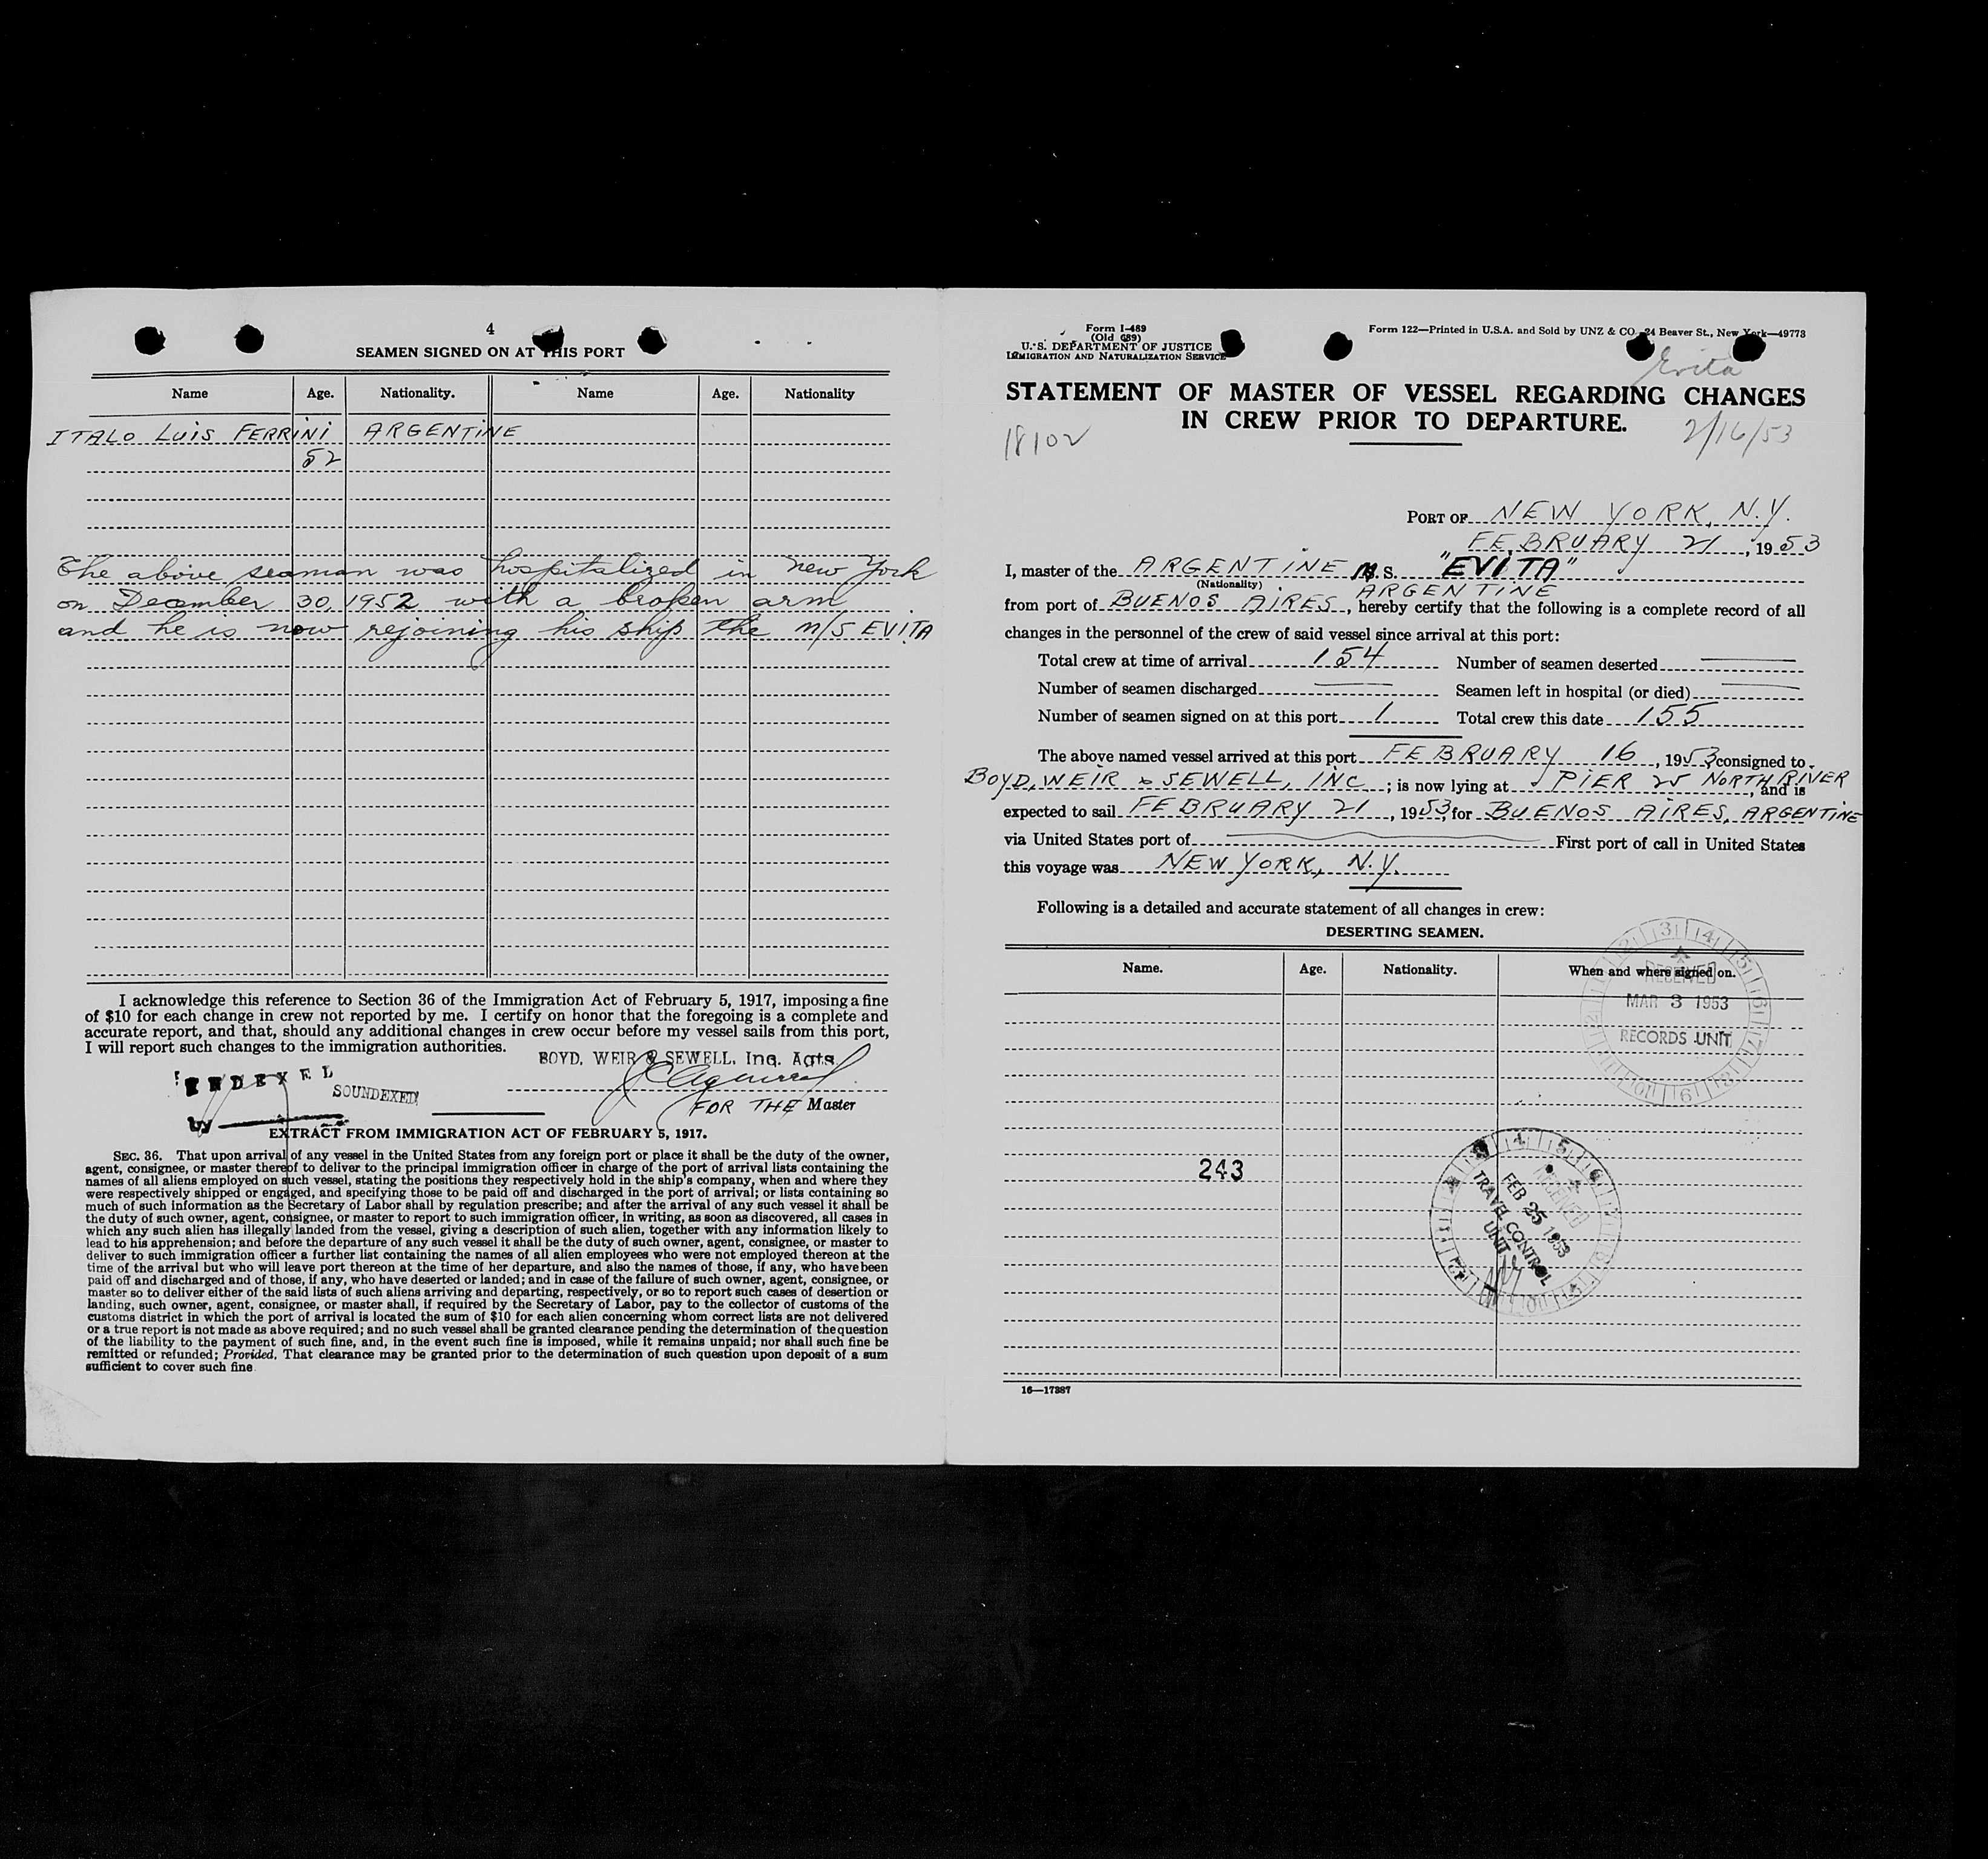 4
SEAMEN SIGNED ON AT THIS PORT
Name Age. Nationality. Name Age. Nationality
ITALO LUIS FERRINI ARGENTINE
52
The above seaman was hospitalized in New York
on December 30, 1952 with a broken arm
and he is now rejoining his ship the M/S EVITA
I acknowledge this reference to Section 36 of the Immigration Act of February 5, 1917, imposing a fine
of $10 for each change in crew not reported by me. I certify on honor that the foregoing is a complete and
accurate report, and that, should any additional changes in crew occur before my vessel sails from this port,
I will report such changes to the immigration authorities.
BOYD, WEIR & SEWELL, Inc. Agts.
INDEXED
SOUNDEXED
FOR THE Master
by
EXTRACT FROM IMMIGRATION ACT OF FEBRUARY 5, 1917.
SEC. 36. That upon arrival of any vessel in the United States from any foreign port or place it shall be the duty of the owner,
agent, consignee, or master thereof to deliver to the principal immigration officer in charge of the port of arrival lists containing the
names of all aliens employed on such vessel, stating the positions they respectively hold in the ship's company, when and where they
were respectively shipped or engaged, and specifying those to be paid off and discharged in the port of arrival; or lists containing so
much of such information as the Secretary of Labor shall by regulation prescribe; and after the arrival of any such vessel it shall be
the duty of such owner, agent, consignee, or master to report to such immigration officer, in writing, as soon as discovered, all cases in
which any such alien has illegally landed from the vessel, giving a description of such alien, together with any information likely to
lead to his apprehension; and before the departure of any such vessel it shall be the duty of such owner, agent, consignee, or master to
deliver to such immigration officer a further list containing the names of all alien employees who were not employed thereon at the
time of the arrival but who will leave port thereon at the time of her departure, and also the names of those, if any, who have been
paid off and discharged and of those, if any, who have deserted or landed; and in case of the failure of such owner, agent, consignee, or
master so to deliver either of the said lists of such aliens arriving and departing, respectively, or so to report such cases of desertion or
landing, such owner, agent, consignee, or master shall, if required by the Secretary of Labor, pay to the collector of customs of the
customs district in which the port of arrival is located the sum of $10 for each alien concerning whom correct lists are not delivered
or a true report is not made as above required; and no such vessel shall be granted clearance pending the determination of the question
of the liability to the payment of such fine, and, in the event such fine is imposed, while it remains unpaid; nor shall such fine be
remitted or refunded; Provided, That clearance may be granted prior to the determination of such question upon deposit of a sum
sufficient to cover such fine
Form I-489
(Old 689)
U. S. DEPARTMENT OF JUSTICE
IMMIGRATION AND NATURALIZATION SERVICE
Form 122—Printed in U.S.A. and Sold by UNZ & CO. 24 Beaver St., New York—49773
Evita
STATEMENT OF MASTER OF VESSEL REGARDING CHANGES
IN CREW PRIOR TO DEPARTURE.
18102
2/16/53
PORT OF NEW YORK, N.Y.
FEBRUARY 21, 1953
I, master of the ARGENTINE M.S. "EVITA"
(Nationality)
ARGENTINE
from port of BUENOS AIRES, hereby certify that the following is a complete record of all
changes in the personnel of the crew of said vessel since arrival at this port:
Total crew at time of arrival 154 Number of seamen deserted
Number of seamen discharged Seamen left in hospital (or died)
Number of seamen signed on at this port 1 Total crew this date 155
The above named vessel arrived at this port FEBRUARY 16, 1953 consigned to
BOYD, WEIR & SEWELL, INC; is now lying at PIER 25 NORTH RIVER, and is
expected to sail FEBRUARY 21, 1953, for BUENOS AIRES, ARGENTINE
via United States port of First port of call in United States
this voyage was NEW YORK, N.Y.
Following is a detailed and accurate statement of all changes in crew:
DESERTING SEAMEN.
Name. Age. Nationality. When and where signed on.
RECEIVED
MAR 3 1953
RECORDS UNIT
243
RECEIVED
FEB 25 1953
TRAVEL CONTROL
UNIT
16—17387